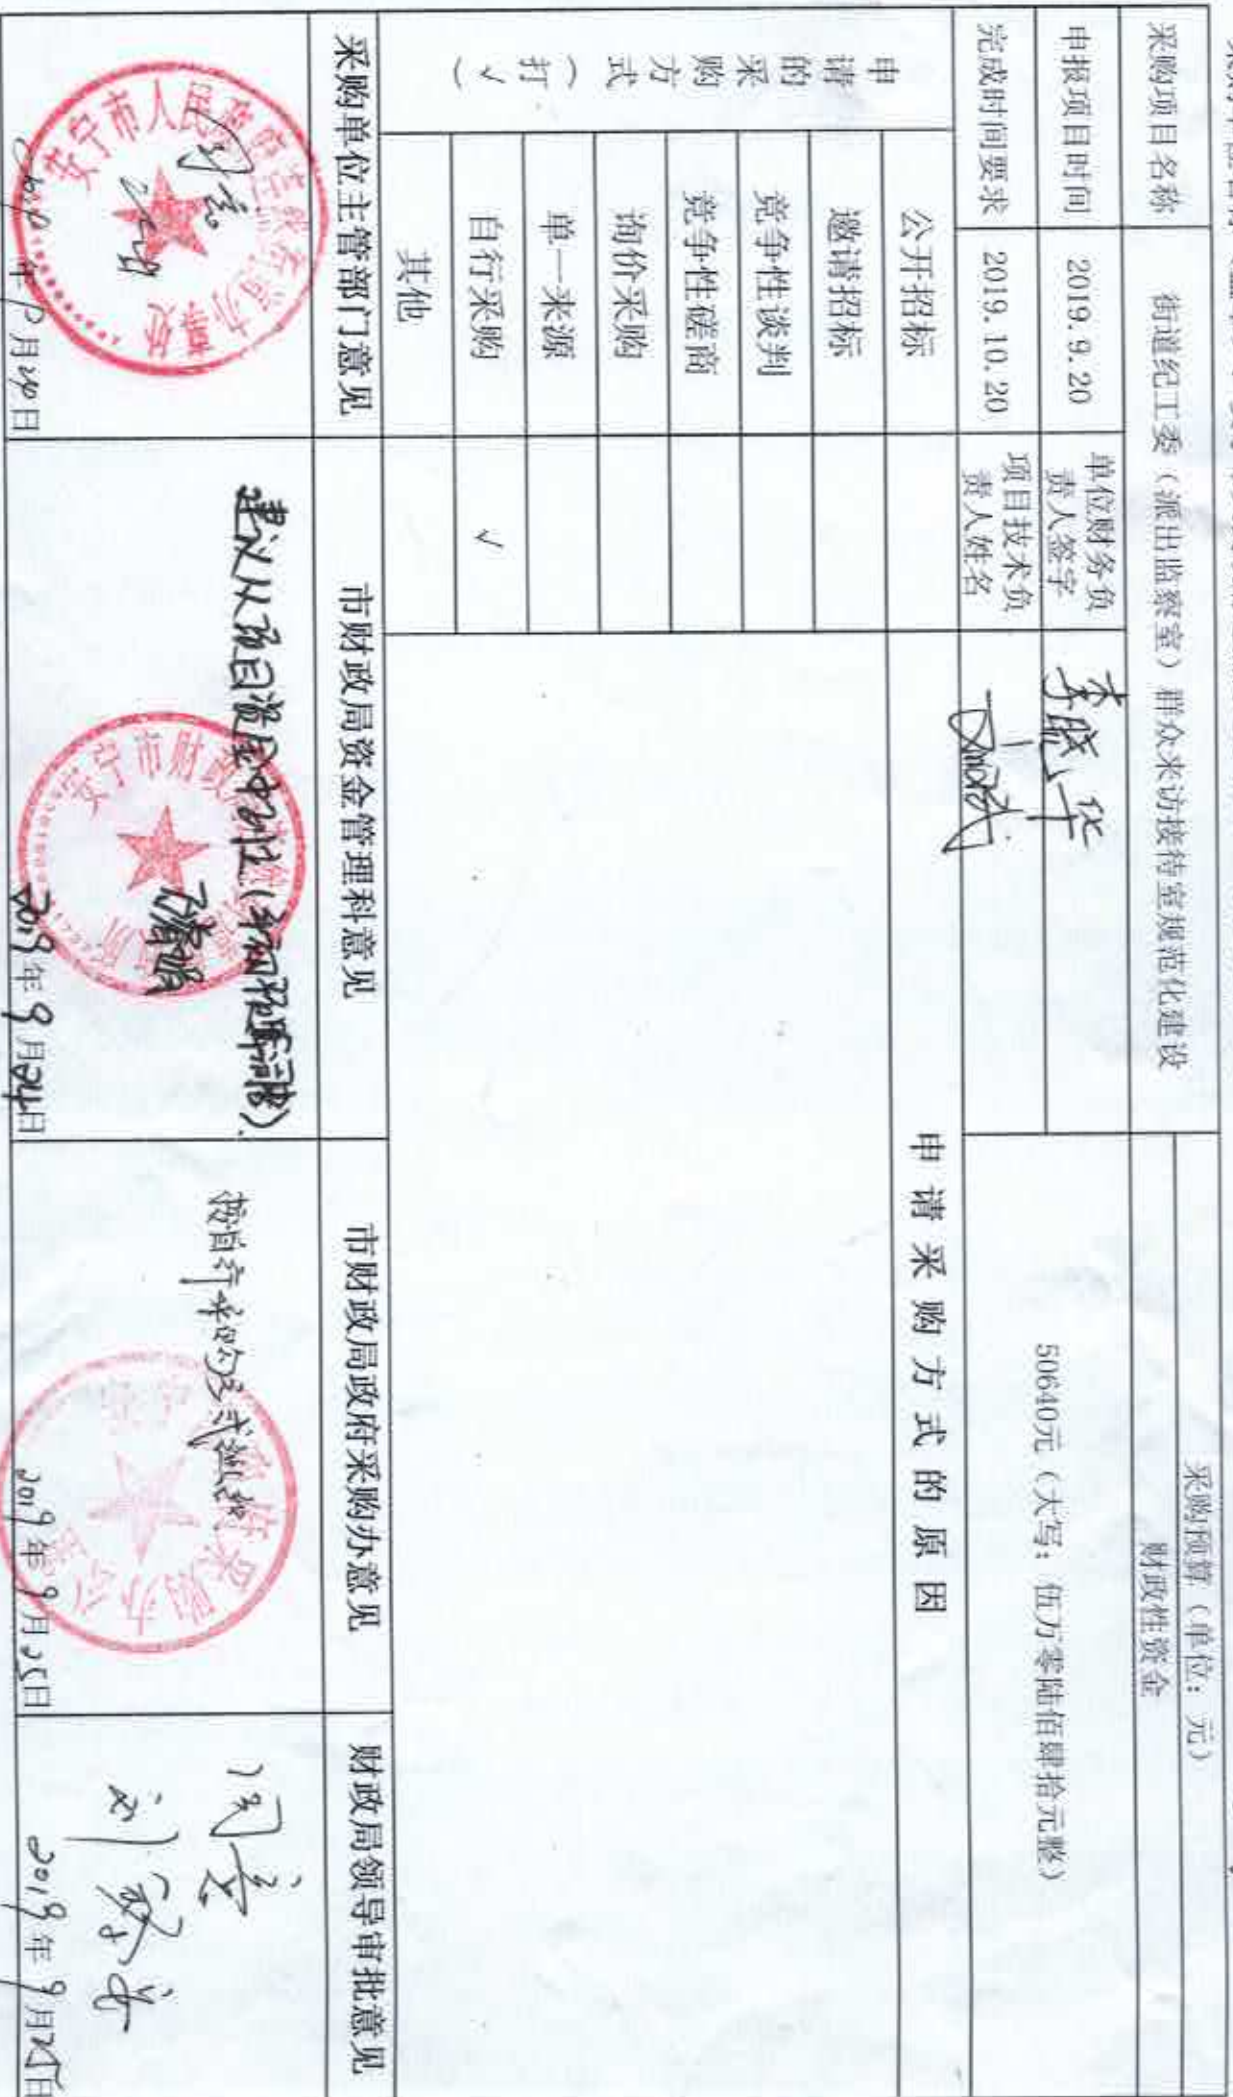 采购项目名称
街道纪工委（派出监察室）群众来访接待室规范化建设
采购预算（单位：元）
财政性资金
申报项目时间
2019.9.20
单位财务负责人签字
李晓华
50640元（大写：伍万零陆佰肆拾元整）
完成时间要求
2019.10.20
项目技术负责人姓名
申请的采购方式（打√）
公开招标
申请采购方式的原因
邀请招标
竞争性谈判
竞争性磋商
询价采购
单一来源
自行采购
√
其他
采购单位主管部门意见
市财政局资金管理科意见
市财政局政府采购办意见
财政局领导审批意见
同意
建议从项目资金中列支
按自行采购方式组织
安宁市人民政府
安宁市财政
采购办公
年9月20日
2019年9月24日
2019年9月25日
2019年9月25日